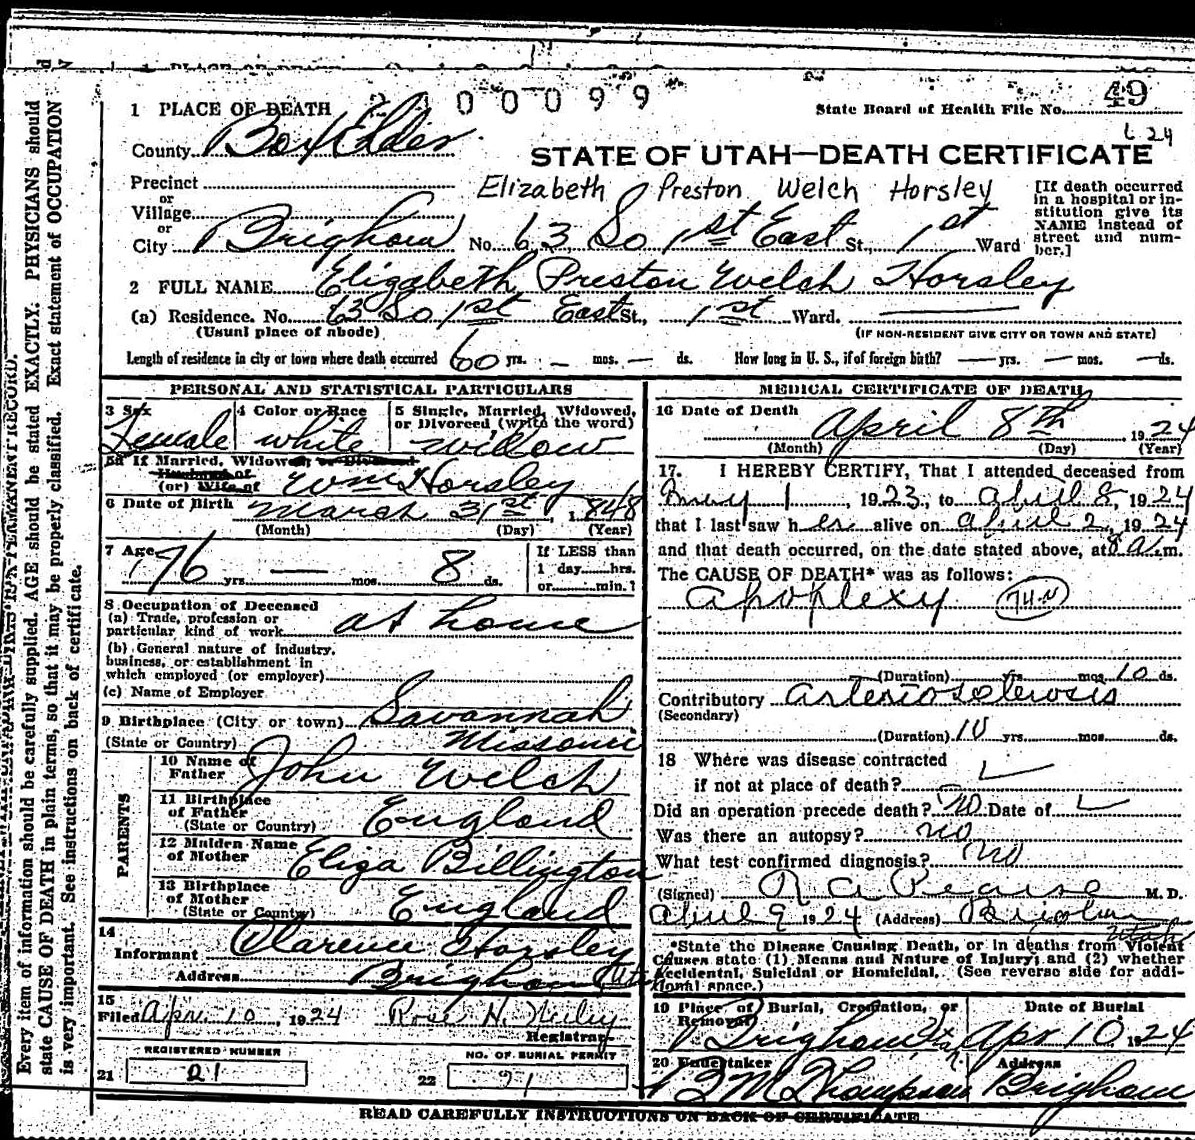 1 PLACE OF DEATH
2100099
State Board of Health File No. 49
County Box Elder
L 24
STATE OF UTAH—DEATH CERTIFICATE
Precinct
or
Village
or
City Brigham No. 63 So 1st East St., 1st Ward
Elizabeth Preston Welch Horsley
[If death occurred
in a hospital or in-
stitution give its
NAME instead of
street and num-
ber.]
2 FULL NAME Elizabeth Preston Welch Horsley
(a) Residence. No. 63 So 1st East St., 1st Ward.
(Usual place of abode)
(IF NON-RESIDENT GIVE CITY OR TOWN AND STATE)
Length of residence in city or town where death occurred 60 yrs. - mos. - ds. How long in U. S., if of foreign birth? — yrs. — mos. — ds.
PERSONAL AND STATISTICAL PARTICULARS
3 Sex
Female
4 Color or Race
white
5 Single, Married, Widowed,
or Divorced (write the word)
widow
5a If Married, Widowed, or Divorced
Husband of
(or) Wife of Wm Horsley
6 Date of Birth March 31st 1848
(Month) (Day) (Year)
7 Age
76 yrs. — mos. 8 ds.
If LESS than
1 day....hrs.
or......min.?
8 Occupation of Deceased
(a) Trade, profession or
particular kind of work at home
(b) General nature of industry,
business, or establishment in
which employed (or employer)
(c) Name of Employer
9 Birthplace (City or town) Savannah
(State or Country) Missouri
PARENTS
10 Name of
Father John Welch
11 Birthplace
of Father
(State or Country) England
12 Maiden Name
of Mother Eliza Billington
13 Birthplace
of Mother
(State or Country) England
14
Informant Clarence Horsley
Address Brigham Utah
15
Filed Apr. 10, 1924 Rose H.
Registrar
REGISTERED NUMBER
21 21
NO. OF BURIAL PERMIT
22 21
MEDICAL CERTIFICATE OF DEATH
16 Date of Death
April 8th 1924
(Month) (Day) (Year)
17. I HEREBY CERTIFY, That I attended deceased from
May 1, 1923, to April 8, 1924
that I last saw her alive on April 2, 1924
and that death occurred, on the date stated above, at 8 a.m.
The CAUSE OF DEATH* was as follows:
Apoplexy
(Duration) yrs. mos. 10 ds.
Contributory Arteriosclerosis
(Secondary)
(Duration) 10 yrs. mos. ds.
18 Where was disease contracted
if not at place of death?
Did an operation precede death? No Date of
Was there an autopsy? no
What test confirmed diagnosis? no
(Signed) R A Pearse M. D.
April 9 1924 (Address) Brigham Utah
*State the Disease Causing Death, or in deaths from Violent
Causes state (1) Means and Nature of Injury; and (2) whether
Accidental, Suicidal or Homicidal. (See reverse side for addi-
tional space.)
19 Place of Burial, Cremation, or
Removal Date of Burial
Brigham Utah Apr 10 1924
20 Undertaker Address
M Thompson Brigham
READ CAREFULLY INSTRUCTIONS ON BACK OF CERTIFICATE
Every item of information should be carefully supplied. AGE should be stated EXACTLY. PHYSICIANS should
state CAUSE OF DEATH in plain terms, so that it may be properly classified. Exact statement of OCCUPATION
is very important. See instructions on back of certificate.